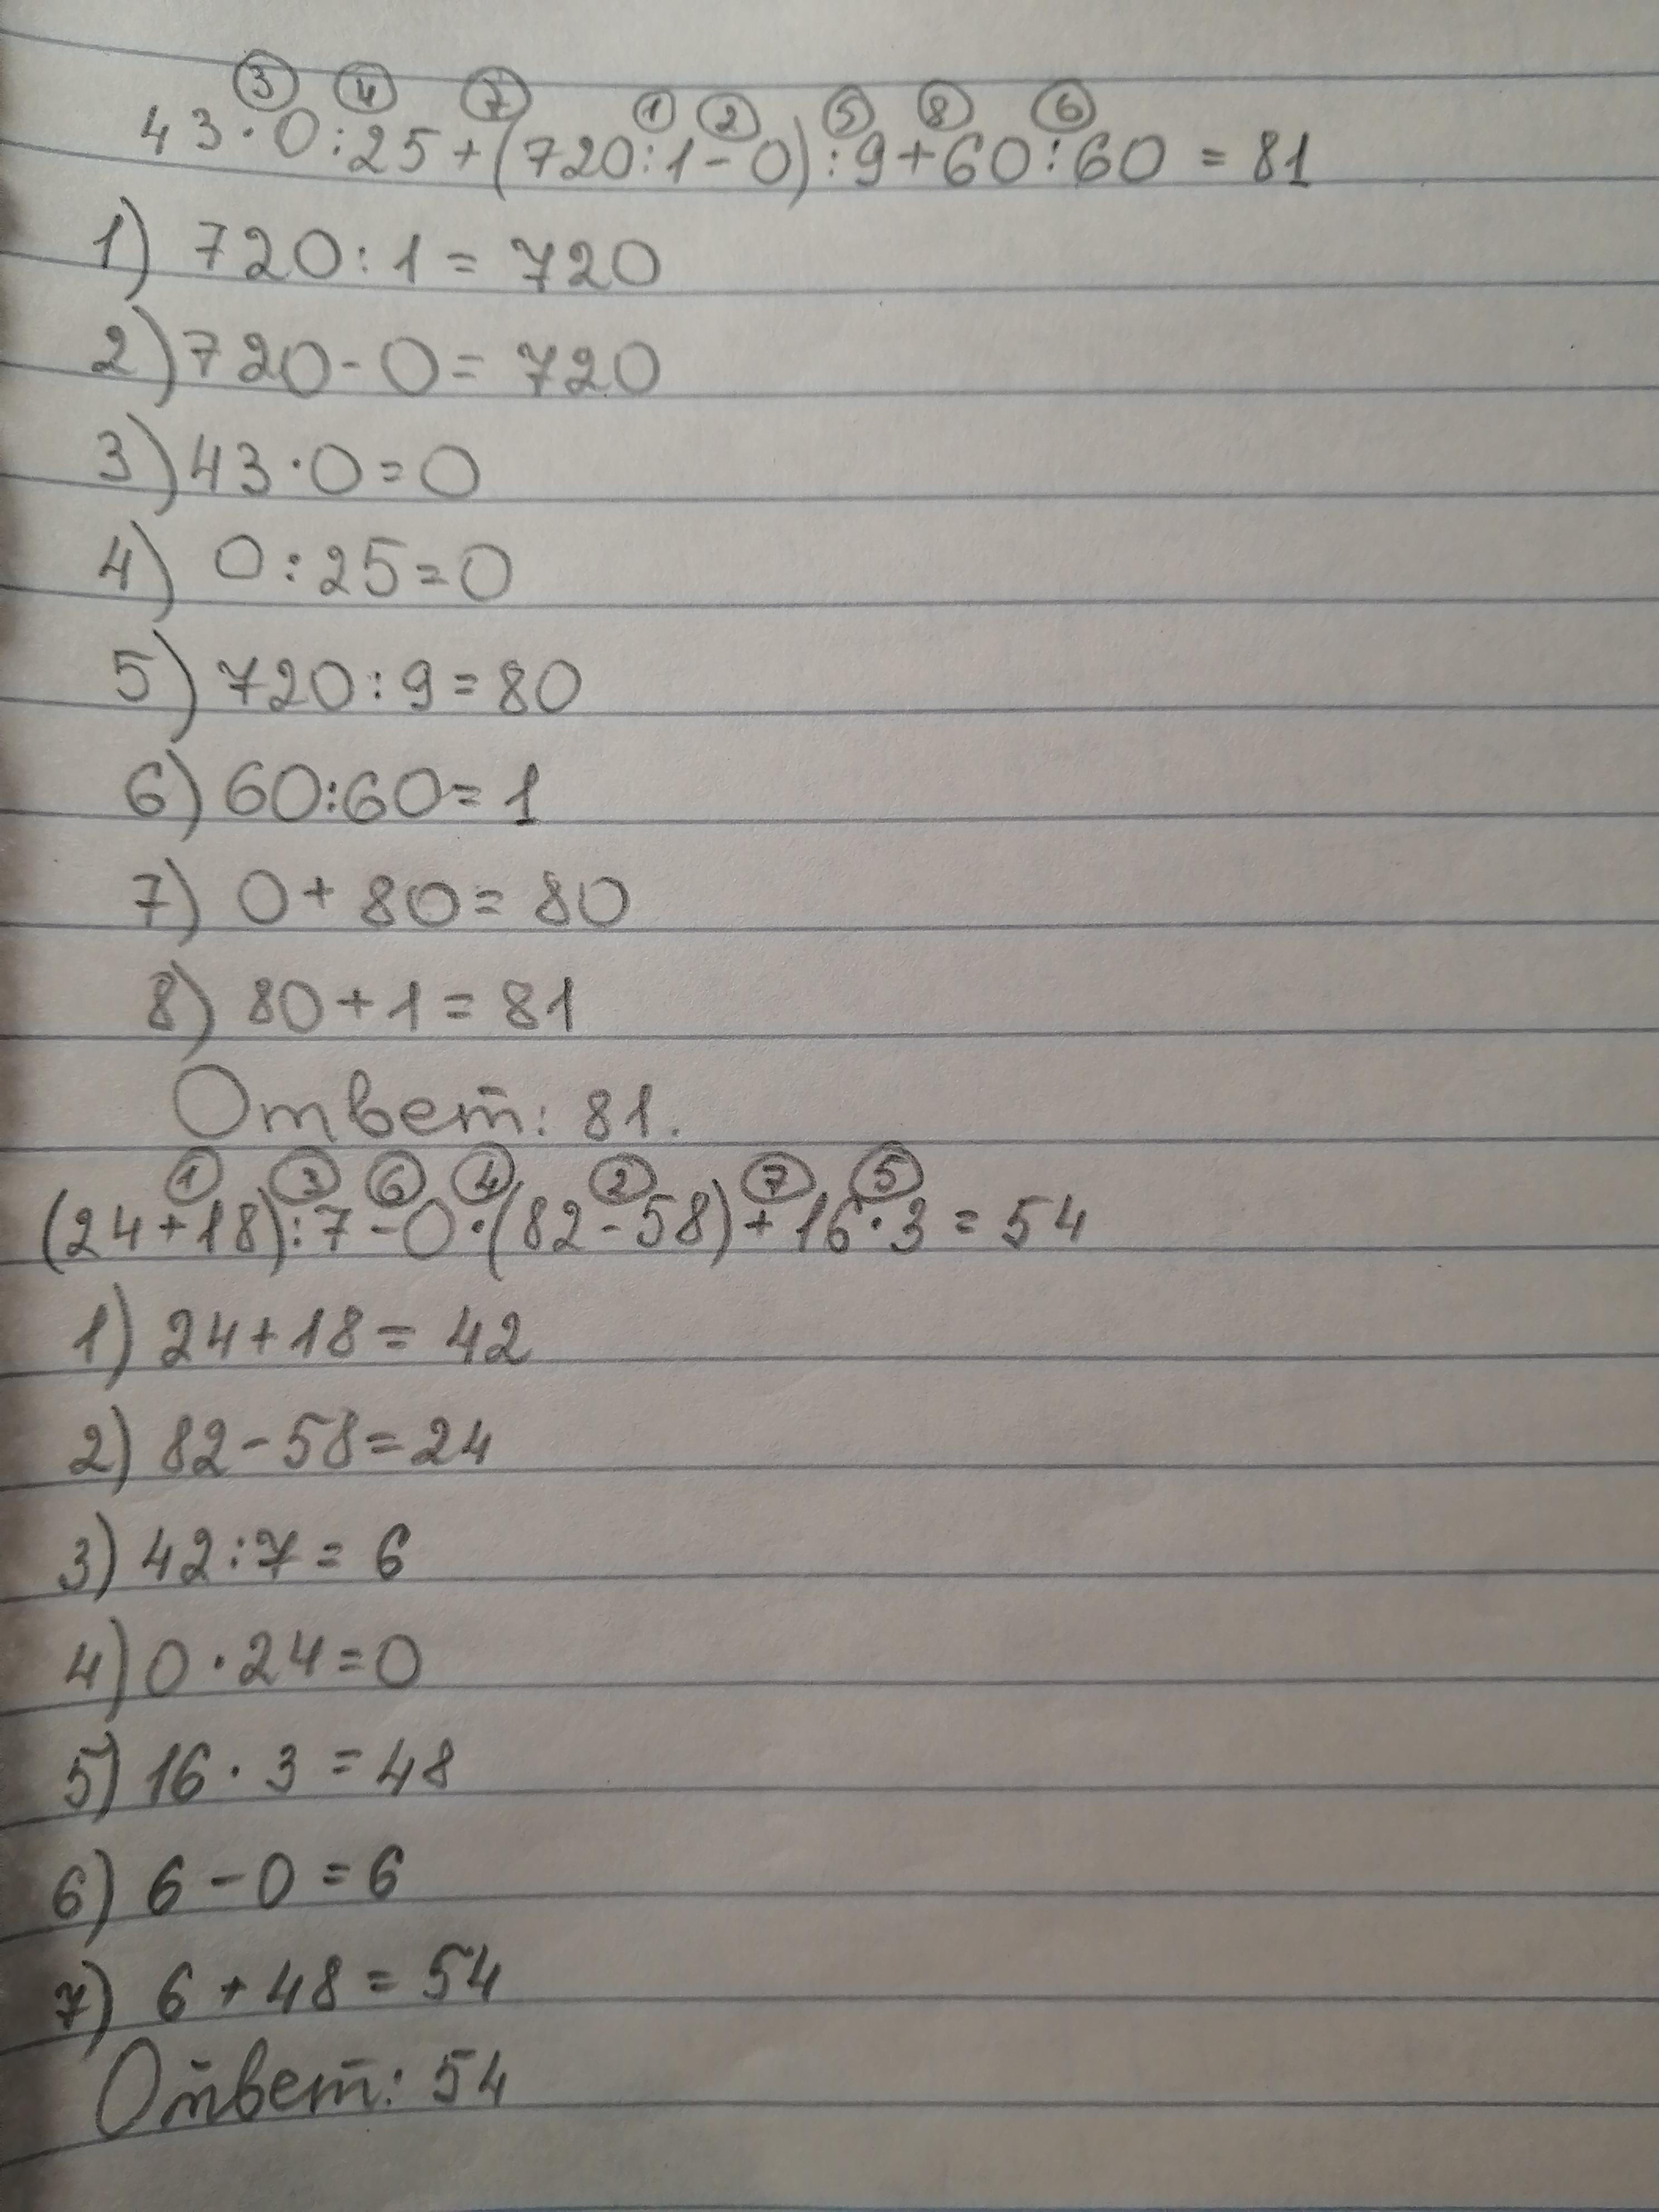 ③ ④ ⑦ ① ② ⑤ ⑧ ⑥
43·0:25+(720:1-0):9+60:60=81
1) 720:1=720
2) 720-0=720
3) 43·0=0
4) 0:25=0
5) 720:9=80
6) 60:60=1
7) 0+80=80
8) 80+1=81
Ответ: 81.
① ③ ⑥ ④ ② ⑦ ⑤
(24+18):7-0·(82-58)+16·3=54
1) 24+18=42
2) 82-58=24
3) 42:7=6
4) 0·24=0
5) 16·3=48
6) 6-0=6
7) 6+48=54
Ответ: 54